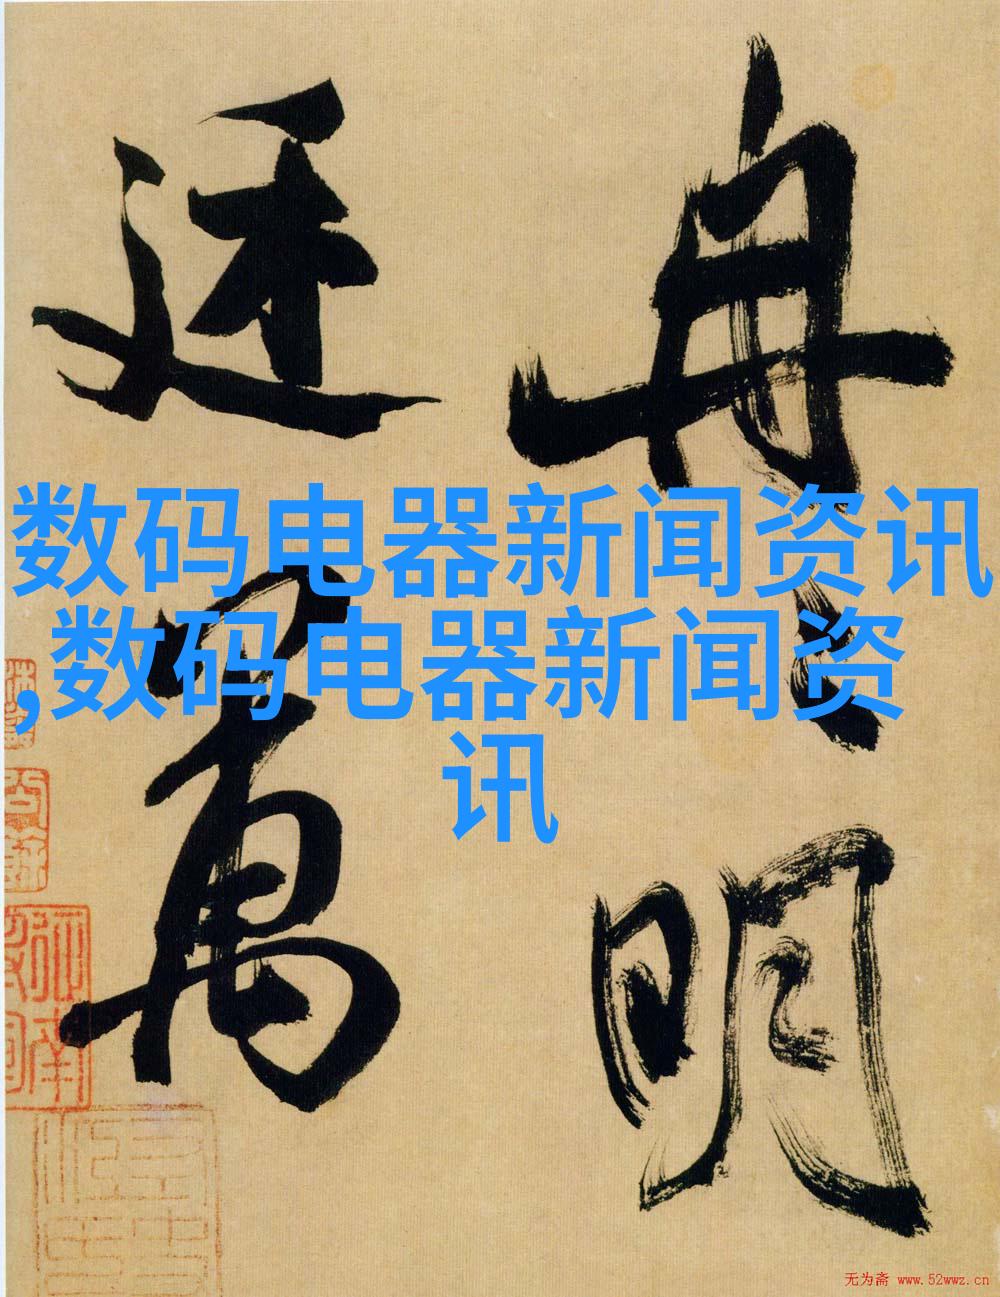 冉々明
廷萬
数码电器新闻资讯
,数码电器新闻资
讯
无为斋 www.52wwz.cn